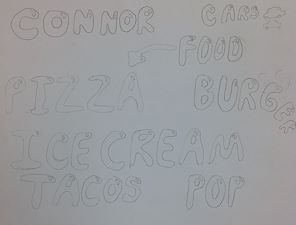 CONNOR CARS
FOOD
PIZZA BURGER
ICE CREAM
TACOS POP